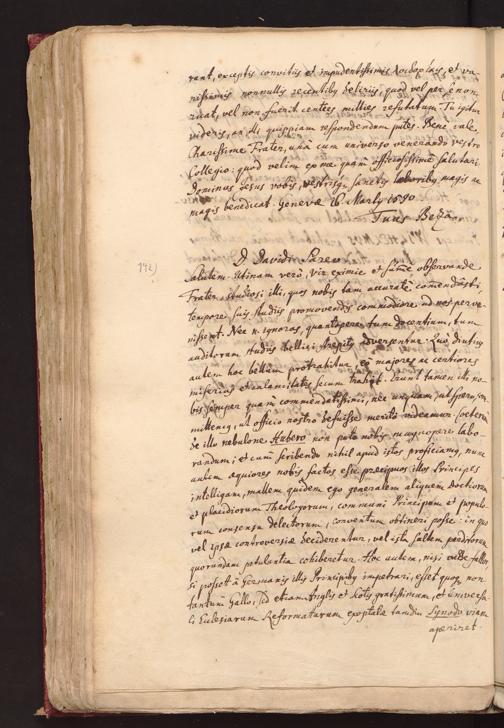 rant, exceptis convitiis et impudentissimis, et va
nissimis nonnullis recentibus deliriis, quod vel per è non
ruat, vel non fuerit centies millies refutatum. Tu igitur
videris, an illi quippiam respondendum putes. Bene vale,
Charissime Frater, unà cum universo venerando vestro
Collegio: quod velim ex me quam officiosissime salutari.
Dominus Jesus vobis, vestrisq; sanctis laboribus magis ac
magis benedicat. Genevæ 16 Martij 1590.
Tuus Beza.
D. Davidi Pareo
192)
salutem. Utinam verò, vir eximie et summe observande
Frater, studiosi illi, quos nobis tam accurate commendasti,
tempore suis studiis promovendis commodiore ad nos perve-
nissent. Nec n. ignoras, quantopere tum docentium, tum
auditorum studiis bellici strepitus adversentur. Quo diutius
autem hoc bellum protrahitur, eò majores ac certiores
miserias et calamitates secum trahit. Erunt tamen illi no-
bis semper quam commendatissimi, nec unquam, ut spero, com
mittemus, ut officio nostro defuisse meritò videamur. Cæterum
de illo nebulone Hubero non puto nobis magnopere labo
randum; et cum scribendo nihil apud istos proficiamus, nunc
autem æquiores nobis factos esse præcipuos illos Principes
intelligam, mallem quidem ego generalem aliquem doctiorum
et placidiorum Theologorum, communi Principum et populo-
rum consensu delectorum, conventum obtineri posse: in quo
vel ipsæ controversiæ deciderentur, vel ista saltem
quorundam petulantia cohiberetur. Hoc autem, nisi valde fallor,
si posset à Germanis illis Principibus impetrari, esset quoq; non
tantum Gallo, sed etiam Anglis et Scotis gratissimum, et universa-
li Ecclesiarum Reformatarum exoptatæ tamdiu Synodo viam
aperiret.